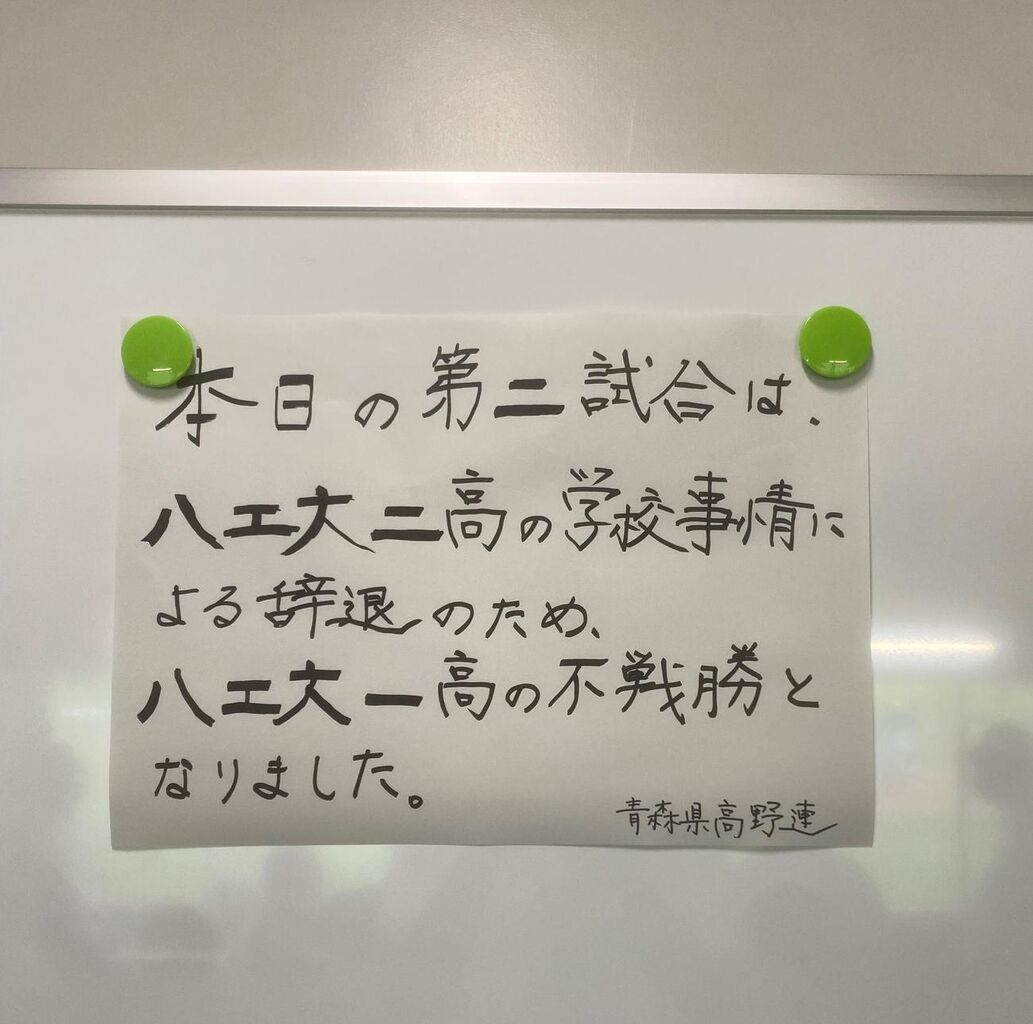 本日の第二試合は、
八工大二高の学校事情に
よる辞退のため、
八工大一高の不戦勝と
なりました。
青森県高野連